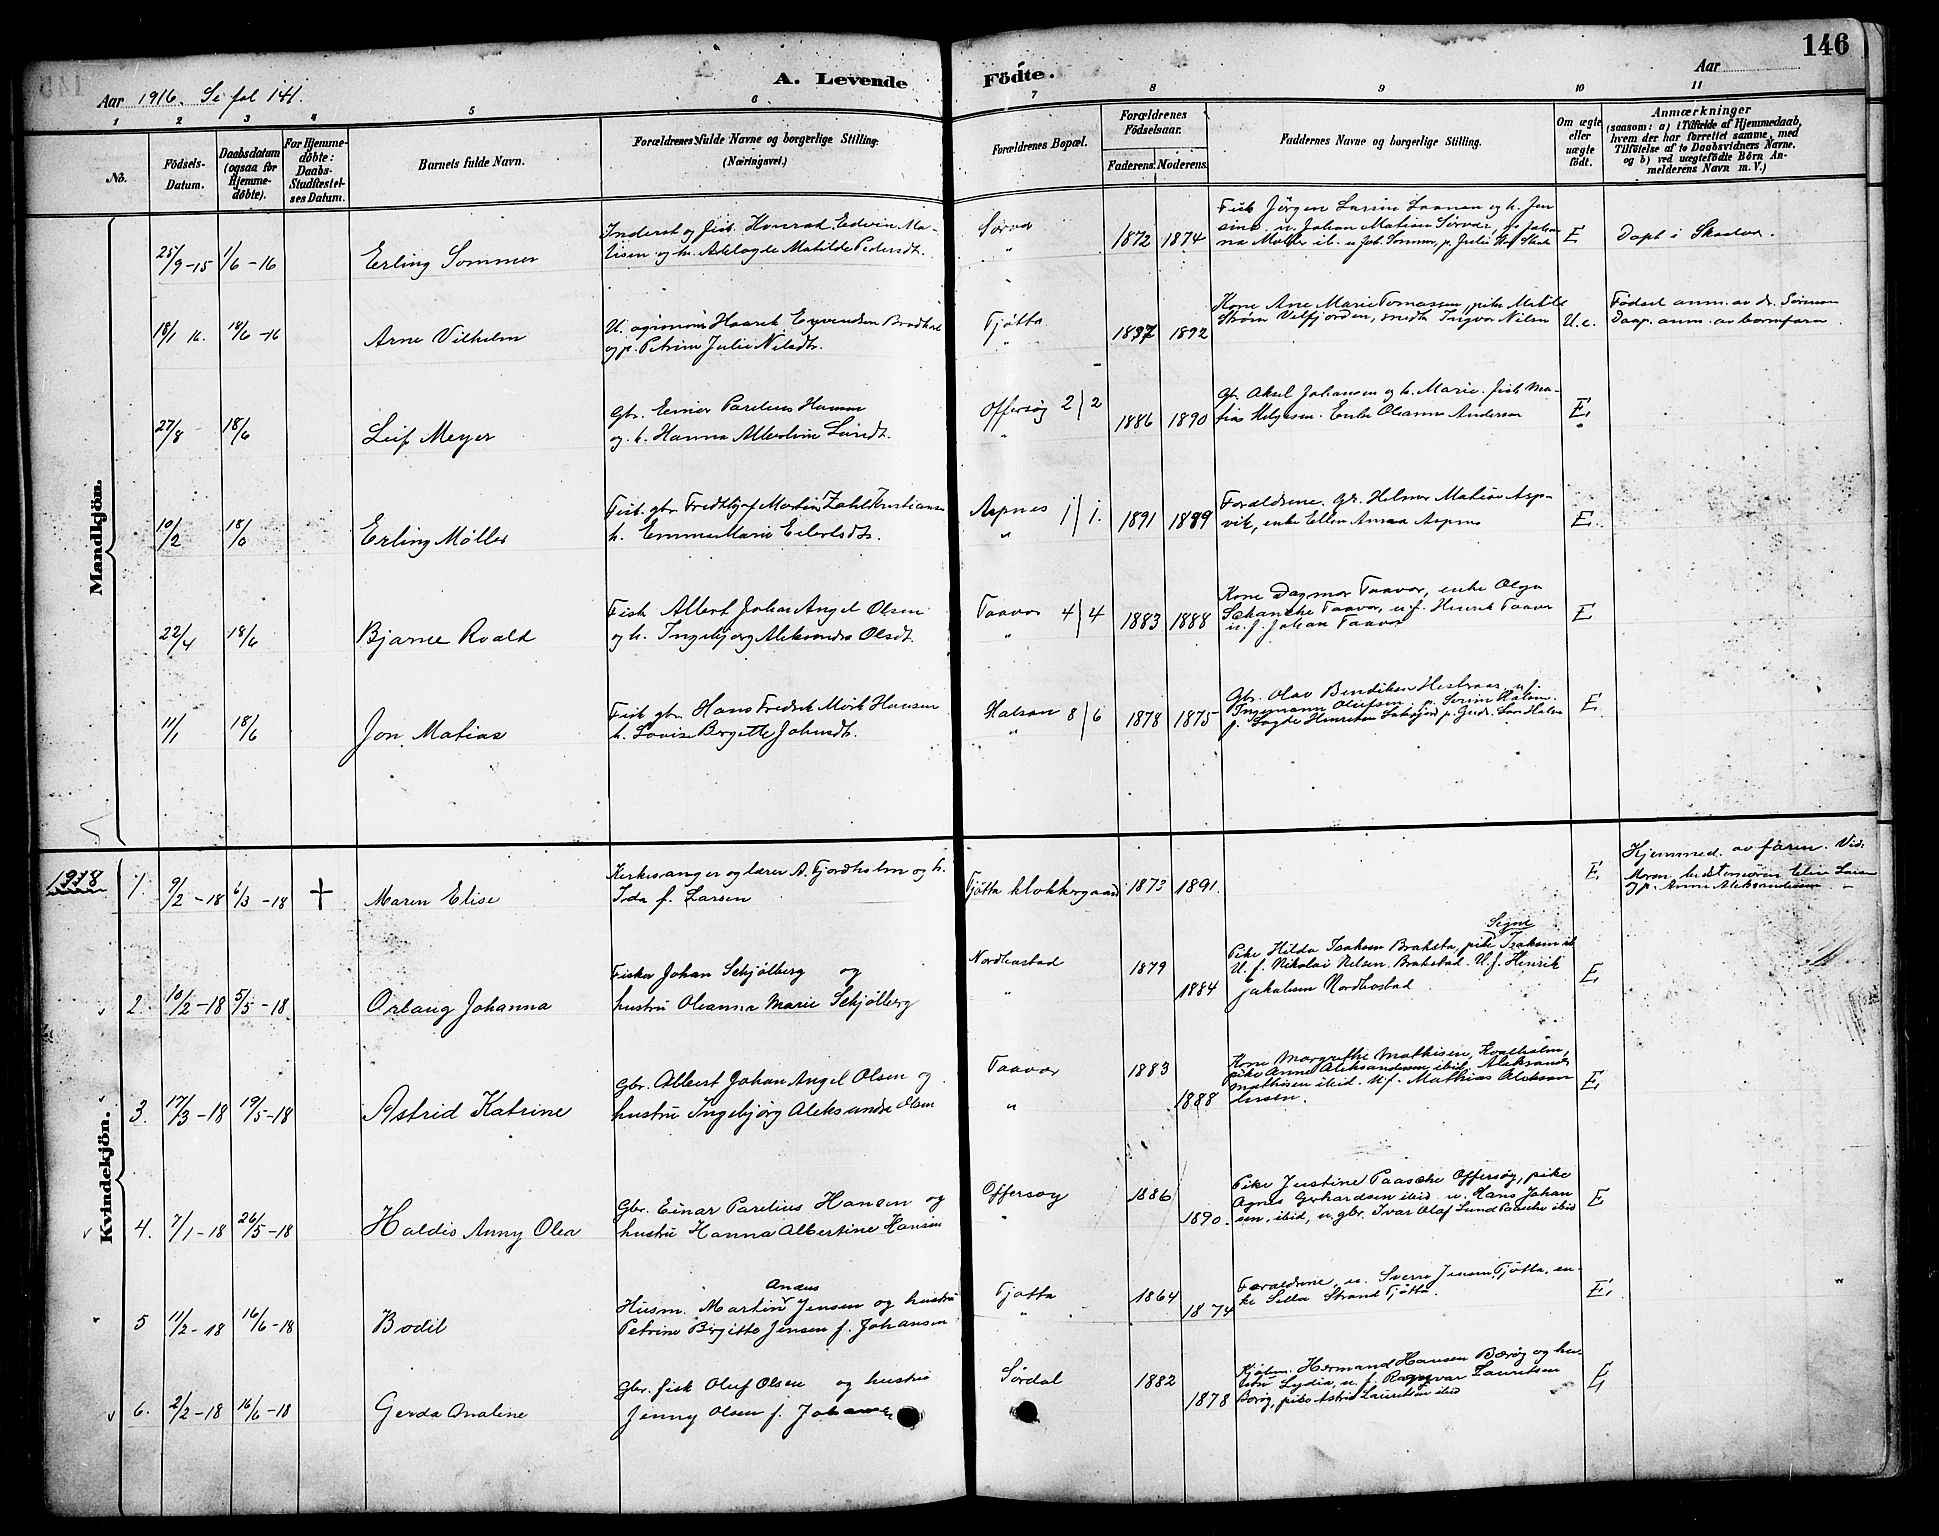 146
A. Levende Födte.
Aar 1916. Se fol 141.
Aar
1 2 3 4 5 6 7 8 9 10 11
No.
Födsels-Datum.
Daabsdatum (ogsaa for Hjemme-døbte).
For Hjemme-døbte: Daabs-Stadfæstel-ses Datum.
Barnets fulde Navn.
Forældrenes fulde Navne og borgerlige Stilling. (Næringsvei.)
Forældrenes Bopæl.
Forældrenes Födselsaar.
Faderens. Moderens.
Faddernes Navne og borgerlige Stilling.
Om ægte eller uægte født.
Anmærkninger
(saasom: a) i Tilfælde af Hjemmedaab, hvem der har forrettet samme, med Tilföielse af to Daabsvidners Navne, og b) ved uægtefödte Börn An-melderens Navn m. V.)
Mandkjön.
25/9-15 1/6-16 Erling Sommer
Inderst og fisk. Konrad Edvin Ma-
tisen og h. Adelagte Matilde Pedersdt.
Sørvær
"
1872 1874
Fisk Jørgen Larsen og h. Jen-
sine. u. Johan Matisen Sørvær,
E
Døpt i Skadvær.
18/1 16. 18/6-16 Arne Vilhelm
og p. Petrine Julie Nilsdt.
Tjøtta
"
1892
Kone Ane Marie Tomassen, pike Matilde
Strøm Velfjorden, smedk Ingvar Nilsen
U.e.
Fødsel anm. av dr. Sørensen
Daap. anm. av barnfaren.
27/8 18/6 Leif Meyer
Gbr. Einar Parelius Hansen
og h. Hanna
Offersøy 2/2
"
1886 1890
Gbr. Aksel Johansen og h. Marie. fisk Ma-
tias Helgesen. Enke Oleanna Andersen
E.
10/2 18/6 Erling Møller
h. Emma Marie Eilertsdt.
Aspnes 1/1.
"
1891 1889
Forældrene. Gbr. Helmer Matisen Asp-
vik, enke Ellen Anna Aspnes
E.
22/4 18/6 Bjarne Roald
Fisk Albert Johan Angel Olsen
og h. Ingebjørg Aleksandra Olsdt.
Taavær 4/4
"
1883 1888
Kone Dagmar Taavær, enke Olga
Schanche Taavær, u.f. Henrik Taavær
u.f. Johan Taavær
E
11/1 18/6 Jon Matias
Fisk gbr Hans Fredrik Mørk Hansen
h. Lovise Birgitte Johnsdt.
Halsan 8/6
"
1878 1875
Gbr. Olav Bendiksen
Ingemann Olufsen, p. Serine Halsan
E.
Kvindekjön.
1918
1. 9/2-18 6/3-18 † Maren Elise
Kirkesanger og lærer A. Fjordholm og h.
Ida f. Larsen
Tjøtta klokkergaard
1873 1891.
E.
Hjemmed. av faren. Vid:
Moren, bedstemoren Elise Larsen
og p. Anna Aleksandersen
2. 10/2-18 5/5-18 Orlaug Johanna
Fisker Johan Schjølberg og
hustru Oleanna Marie Schjølberg
Nordbostad
"
1879
1884
Signe
Pike Hilda Isaksen Brakstad, pike Isaksen ib.
U.f. Nikolai Nilsen Brakstad. U.f. Henrik
Jakobsen Nordbostad
E.
3. 17/3-18 19/5-18 Astrid Katrine
Gbr. Albert Johan Angel Olsen og
hustru Ingebjørg Aleksandra Olsen
Taavær
"
1883
1888
Kone Margrethe Mathisen, Kvalholm,
pike Anna Aleksandersen ibid, Aleksander
Mathisen ibid. U.f. Mathias Aleksan
dersen.
E.
4. 7/1-18 26/5-18 Haldis Anny Olea
Gbr. Einar Parelius Hansen og
hustru Hanna Albertine Hansen
Offersøy
"
1886
1890
Pike Justine Paasche Offersøy, pike
Agnes Gerhardsen ibid. u. Hans Johan
sen, ibid, u. gbr. Ivar Olaf Lund Paasche ibid
E
5 11/2-18 16/6-18 Bodil
Andeus
Husm. Martin Jensen og hustru
Petrine Birgitte Jensen f. Johansen
Tjøtta
"
1864
1874
Forældrene, u. Sverre Jensen, Tjøtta, en-
ke Silla Strand Tjøtta.
E.
6. 2/2-18 16/6-18 Gerda Analine
Gbr. fisk Oluf Olsen og hustru
Jenny Olsen f. Johansen
Sørdal
1882
1878
Kjøbm. Hermand Hansen Barøy og hu-
stru Lydia, u.f. Ragnvar Lauritsen
Barøy, pike Astrid Lauritsen ibid
E